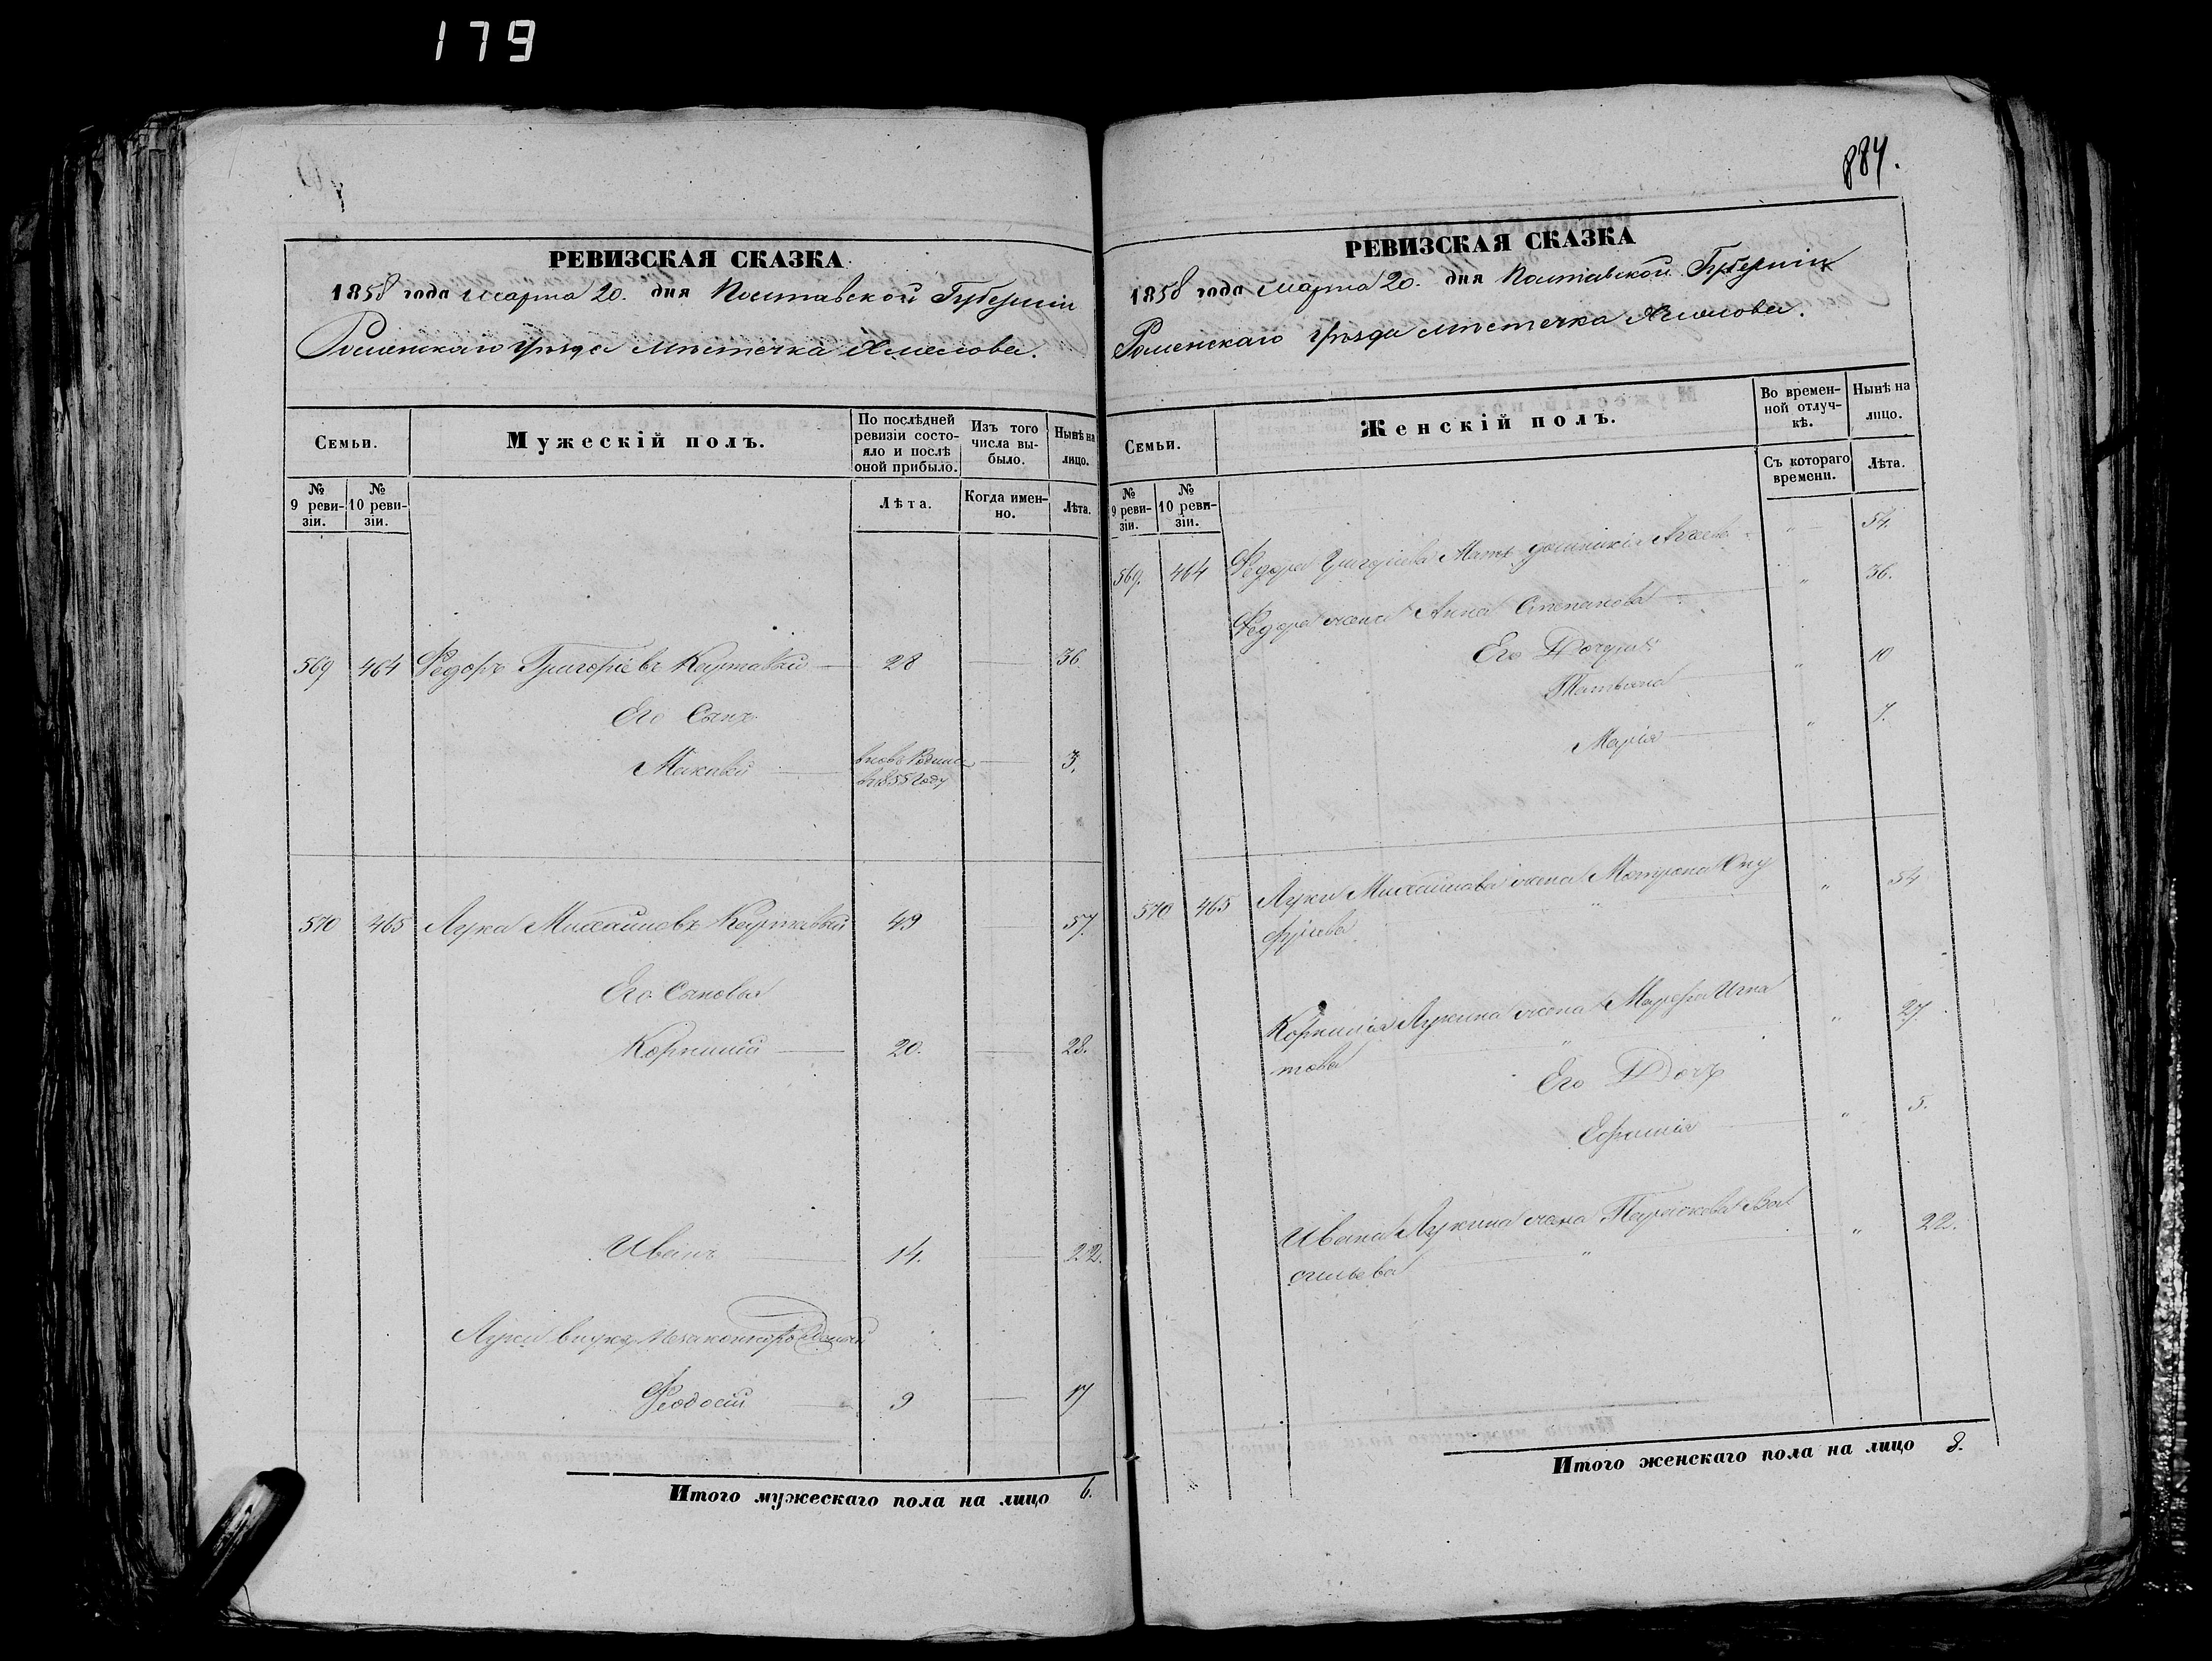 179
884.
РЕВИЗСКАЯ СКАЗКА
1858 года марта 20. дня Полтавской Губерніи
Роменскаго уѣзда мѣстечка Хмелова.
Семьи.
Мужескій полъ.
По послѣдней ревизіи состояло и послѣ оной прибыло.
Изъ того числа выбыло.
Нынѣ на лицо.
№ 9 ревизіи.
№ 10 ревизіи.
Лѣта.
Когда именно.
Лѣта.
569 464 Федоръ Григорьевъ Картавый 28 36
Его Сынъ
Макавѣй вновь Родился в 1855 Году 3.
570 465 Лука Михайловъ Картавый 49 57.
Его Сыновья
Корнилій 20. 28.
Иванъ 14. 22.
Луки внукъ незаконнорожденный
Феодосій 9 17
Итого мужескаго пола на лицо 6.
РЕВИЗСКАЯ СКАЗКА
1858 года марта 20. дня Полтавской Губерніи
Роменскаго уѣзда мѣстечка Хмелова.
Семьи.
Женскій полъ.
Во временной отлучкѣ.
Нынѣ на лицо.
№ 9 ревизіи.
№ 10 ревизіи.
Съ котораго времени.
Лѣта.
569. 464 Федора Григорьева Мать " 54.
Федора жена Анна Степанова " 36.
Его Дочери
Татьяна " 10
Марія " 7.
570 465 Луки Михайлова жена Мотрона Ону " 54
фріева
Корнилія Лукина жена Марфа Игна " 27.
това
Его Дочь
Ефимія " 5.
Ивана Лукина жена Парасковья Ва " 22.
сильева
Итого женскаго пола на лицо 8.